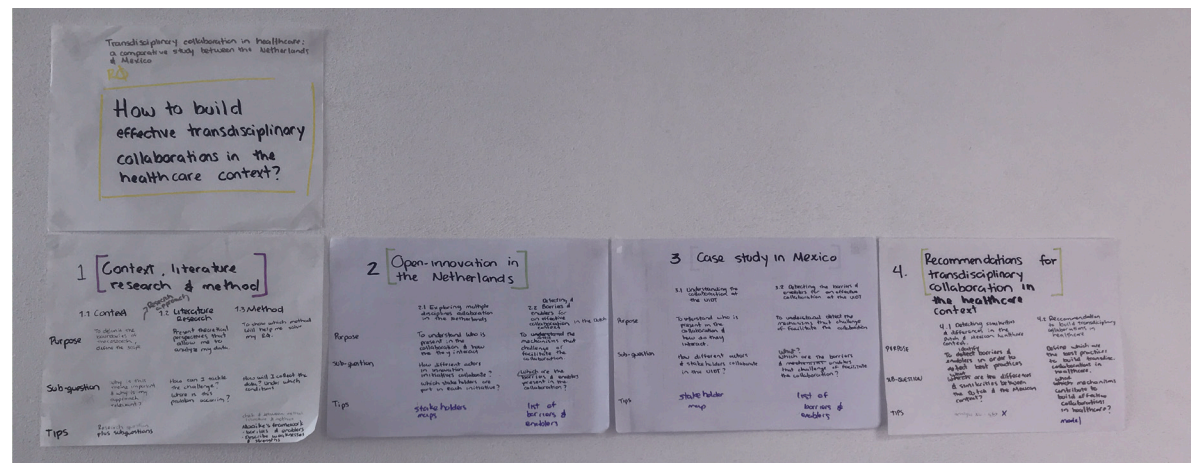 Transdisciplinary collaboration in healthcare:
a comparative study between the Netherlands
& Mexico
RQ
How to build
effective transdisciplinary
collaborations in the
healthcare context?
1 Context, literature
research & method
1.1 Context
1.2 Literature
Research
1.3 Method
Purpose
To show which method
will help me solve
my RQ.
Sub-question
How can I tackle
the challenge?
Where is this
problem occurring?
How will I collect the
data? Under which
conditions?
Tips
plus subquestions
2 Open-innovation in
the Netherlands
2.1 Exploring multiple
disciplines collaboration
in the Netherlands
2.2 Detecting &
Barriers &
enablers for
an effective
collaboration in the
context
Purpose
To understand who is
present in the
collaboration & how
do they interact
To understand the
mechanisms that
challenge or
facilitate the
collaboration
Sub-question
How different actors
in innovation
initiatives collaborate?
which stakeholders are
part in each initiative?
which are the
barriers & enablers
present in the
collaboration?
Tips
stakeholders
maps
list of
barriers &
enablers
3 Case study in Mexico
3.1 Understanding the
collaboration at
the
3.2 Detecting the barriers &
enablers for an effective
collaboration at the
Purpose
To understand who is
present in the
collaboration &
how do they
interact.
To understand detect the
mechanisms that challenge
or facilitate the collaboration
Sub-question
How different actors
& stakeholders collaborate
in the
What?
which are the barriers
& mechanisms enablers
that challenge or facilitate
the collaboration?
Tips
stakeholder
maps
list of
barriers &
enablers
4. Recommendations for
transdisciplinary
collaboration in
the healthcare
context
4.1 Detecting similarities
& difference in the
Dutch & Mexican healthcare
context.
4.2 Recommendation
to build transdisciplinary
collaborations in
healthcare
Purpose
identify
To detect barriers &
enablers in order to
detect best practices
Define which are
the best practices
to build transdis.
collaborations in
healthcare.
Sub-question
what
are the differences
& similarities between
the Dutch & the Mexican
context?
what
which mechanisms
contribute to
build effective
collaborations
in healthcare?
Tips
X
model